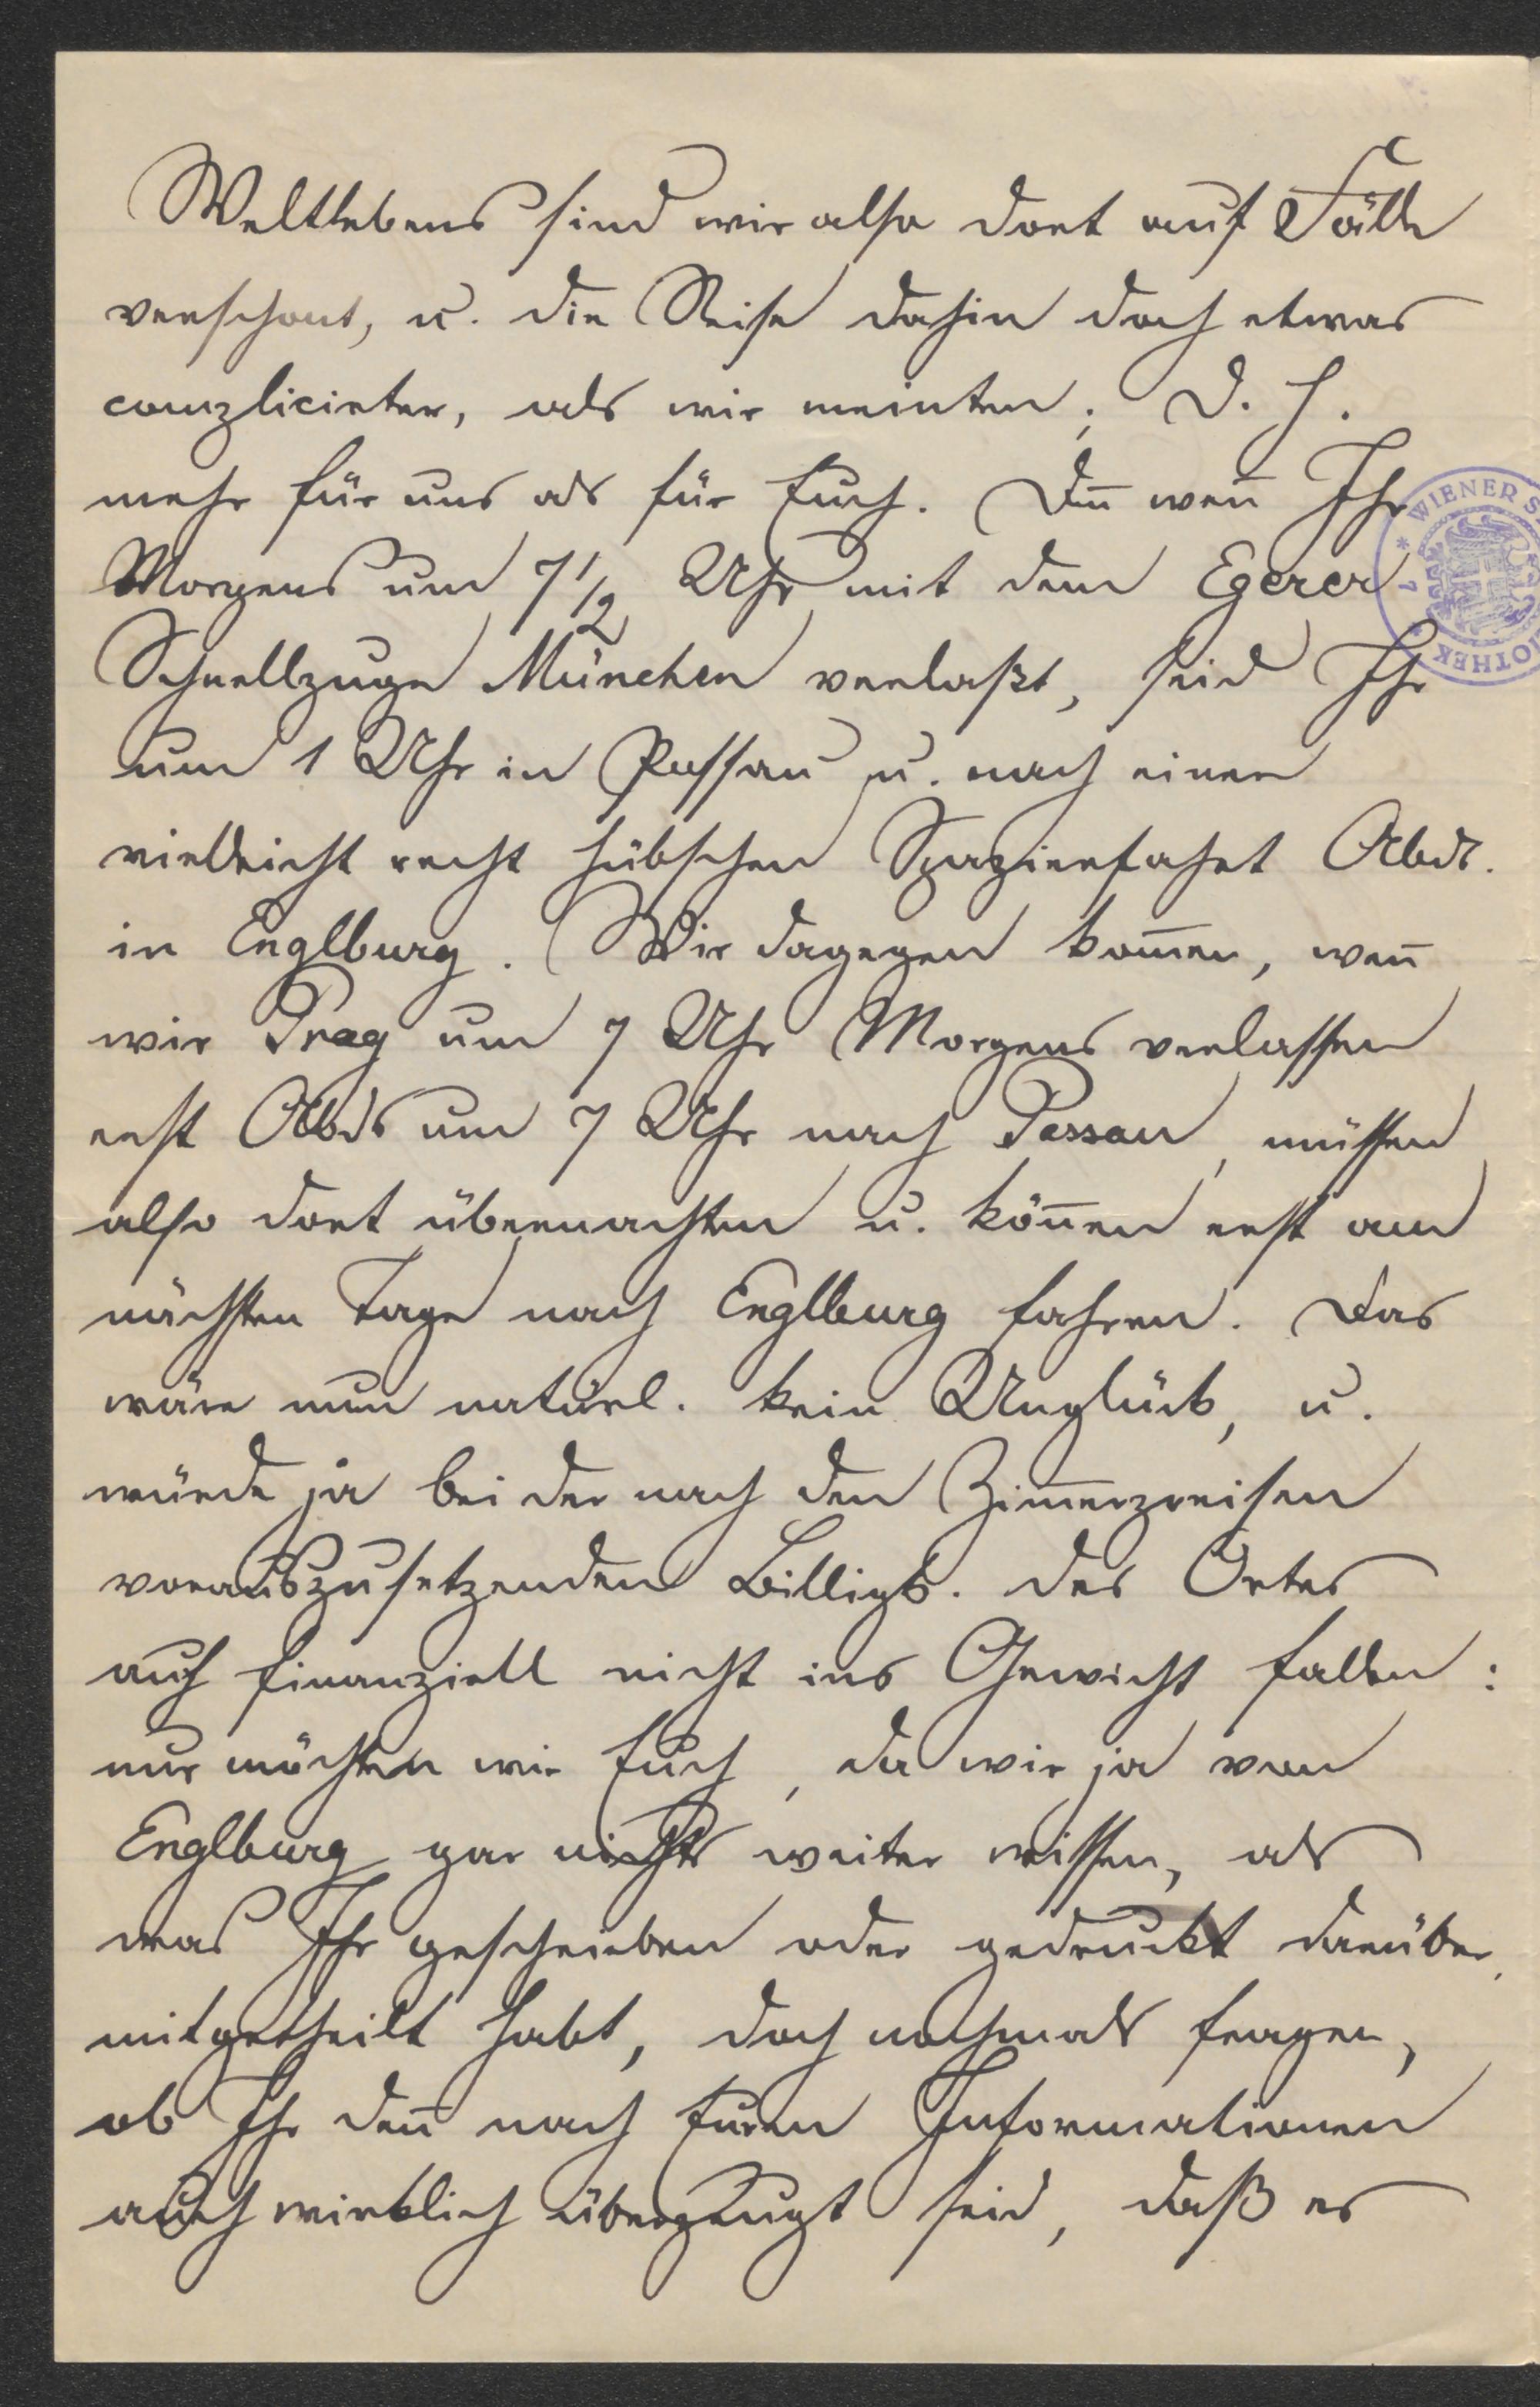 Weltlebens sind wir also dort auf Fälle
verschont, u. die Reise dahin doch etwas
complicirter, als wir meinten; D. h.
mehr für uns als für Euch. Deñ weñ Ihr
Morgens um 7 1/2 Uhr mit dem Egerer
Schnellzuge München verlaßt, seid Ihr
um 1 Uhr in Passau u. nach einer
vielleicht recht hübschen Spazierfahrt Abds.
in Englburg. Wir dagegen kom̄en, weñ
wir Prag um 7 Uhr Morgens verlassen
erst Abds um 7 Uhr nach Passau, müssen
also dort übernachten u. köñen erst am
nächsten Tage nach Englburg fahren. Das
wäre nun natürl. kein Unglück, u.
würde ja bei der nach den Zim̄erpreisen
vorauszusetzenden Billigk. des Ortes
auch finanziell nicht ins Gewicht fallen:
nur möchten wir Euch, da wir ja von
Englburg gar nichts weiter wissen, als
was Ihr geschrieben oder gedruckt darüber
mitgetheilt habt, doch nochmals fragen,
ob Ihr deñ nach Euren Informationen
auch wirklich überzeugt seid, daß es
WIENER S
IOTHEK